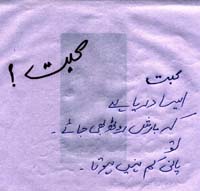 محبت !
محبت
ایسا دریا ہے
کہ بارش روٹھ بھی جائے۔
تو
پانی کم نہیں ہوتا۔